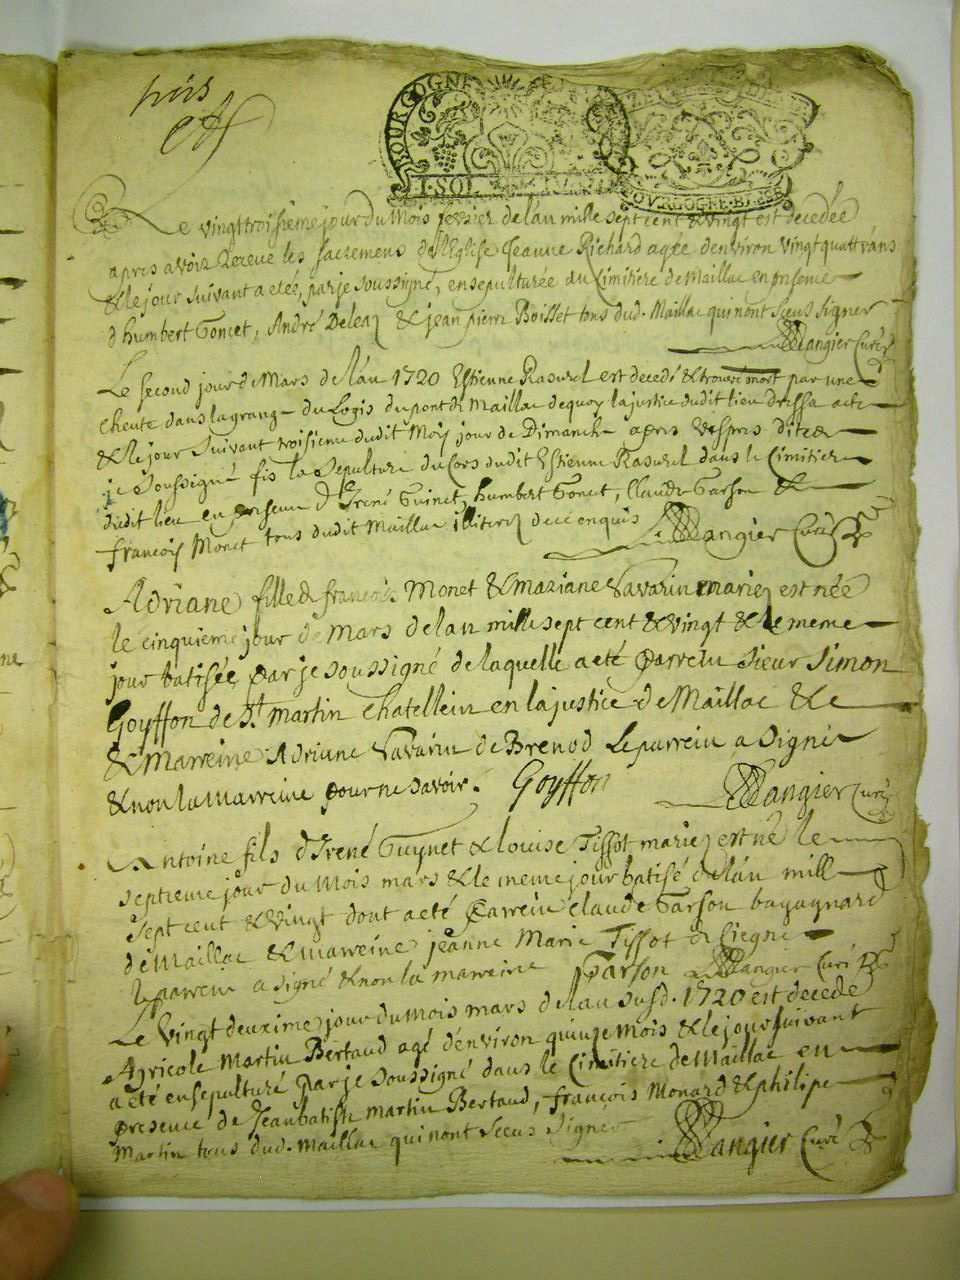 trois
BOURGOGNE
I. SOL
BOVRGOGNE. BRESSE
Le vingt troisieme jour du mois fevrier de lan mille sept cent & vingt est decedée
apres avoir receue les sacremens de l'Eglise Jeanne Richard agée denviron vingt quattr ans
& le jour suivant a eté, par je soussigné, ensepulturée au Cimitiere de Maillac en presence
d humbert Goncet, André Deleaz & jean pierre Boisset tous dud. Maillac qui nont sceus signer
Mangier Curé
Le second jour de Mars de l'án 1720 Estienne Rasurel est decedé & trouvé mort par une
cheute dans la grange du Logis du pont de Maillac de quoy la justice dudit lieu dressa acte
& le jour suivant troisieme dudit Mois jour de Dimanche apres vespres dites
je soussigné fis la sepulture du Cors dudit Estienne Rasurel dans le Cimitiere
dudit lieu en presence d'Irené Guinet, humbert Goncet, Claude Garson &
francois Monet tous dudit Maillac illiterez de ce enquis Mangier Curé
Adriane fille de francois Monet & Mariane Savarin mariez est née
le cinquieme jour de Mars de lan mille sept cent & vingt & le meme
jour batisée par je soussigné de laquelle a eté parrein sieur Simon
Goyffon de St. martin Chatellein en la justice de Maillac &c
& Marreine Adriane Savarin de Brenod Le parrein a signé
& non la Marreine pour ne savoir. Goyffon Mangier Curé
Antoine fils d'Irené Guynet & louise Tissot mariez est né le
septieme jour du mois mars & le meme jour batisé de lán mille
sept cent & vingt dont a eté parrein claude Garson bagagnard
de Maillac & marreine jeanne Marie Tissot de Ciegne
le parrein a signé & non la marreine Garson Mangier Curé
Le vingt deuxime jour du mois mars de lan susd. 1720 est decedé
Agricole Martin Bertaud agé d'environ quinze mois & le jour suivant
a été ensepulturé par je soussigné dans le Cimitiere de Maillac en
presence de Jean batiste martin Bertaud, francois Monard & philipe
Martin tous dud. Maillac qui nont sceus signer Mangier Curé